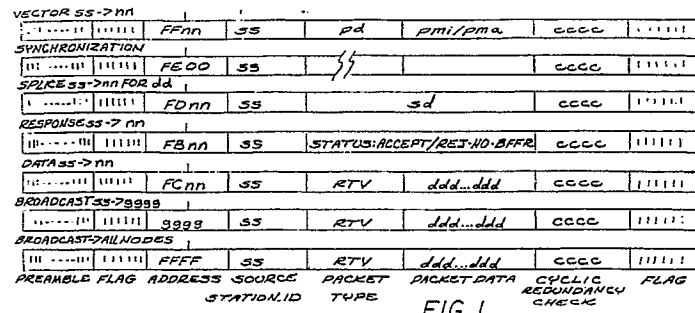 VECTOR ss->nn
FFnn ss pd pmi/pma cccc
SYNCHRONIZATION
FE00 ss cccc
SPLICE ss->nn FOR dd
FDnn ss sd cccc
RESPONSE ss->nn
FBnn ss STATUS:ACCEPT/REJ-NO-BFFR cccc
DATA ss->nn
FCnn ss RTV ddd...ddd cccc
BROADCAST ss->gggg
gggg ss RTV ddd...ddd cccc
BROADCAST->ALL NODES
FFFF ss RTV ddd...ddd cccc
PREAMBLE FLAG ADDRESS SOURCE PACKET PACKET DATA CYCLIC FLAG
STATION.ID TYPE REDUNDANCY
CHECK
FIG 1